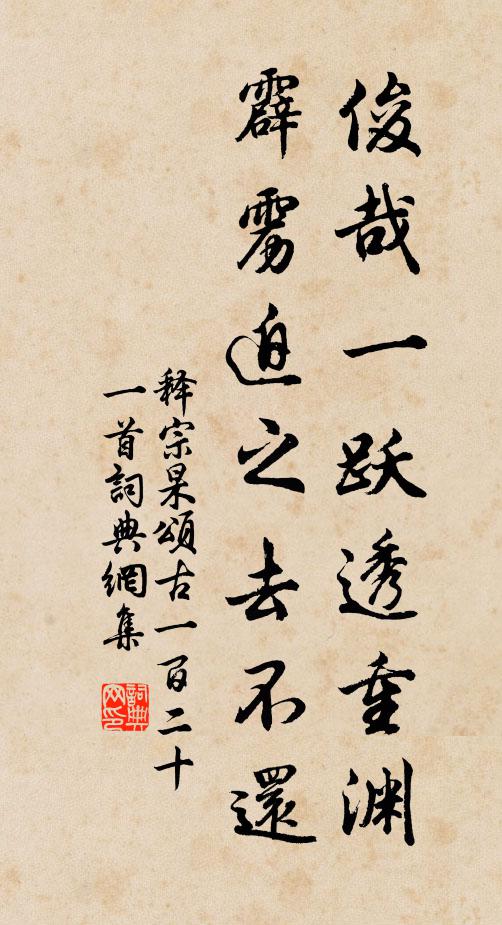 俊哉一跃透重渊
霹雳追之去不還
释宗杲頌古一百二十
一首詞典網集
詞典网印